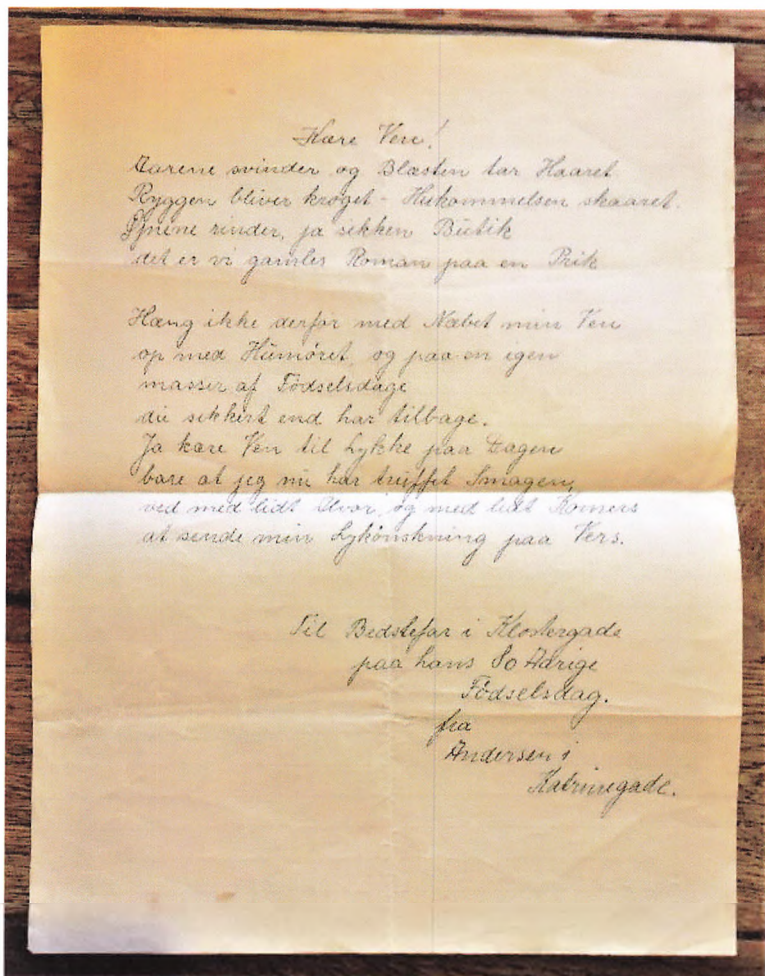 Kære Ven!
Aarene svinder og Blæsten tar Haaret
Ryggen bliver kroget - Hukommelsen skaaret.
Øjnene rinder, ja sikken Butik
det er vi gamles Roman paa en Prik
Hæng ikke derfor med Næbet min Ven
op med Humøret, og paa en igen
masser af Födselsdage
du sikkert end har tilbage.
Ja kære Ven til Lykke paa Dagen
bare at jeg nu har truffet Smagen,
ved med lidt Alvor, og med lidt Komers
at sende min Lykönskning paa Vers.
Til Bedstefar i Klostergade
paa hans 80 Aarige
Födselsdag.
fra
Andersen i
Katrinegade.